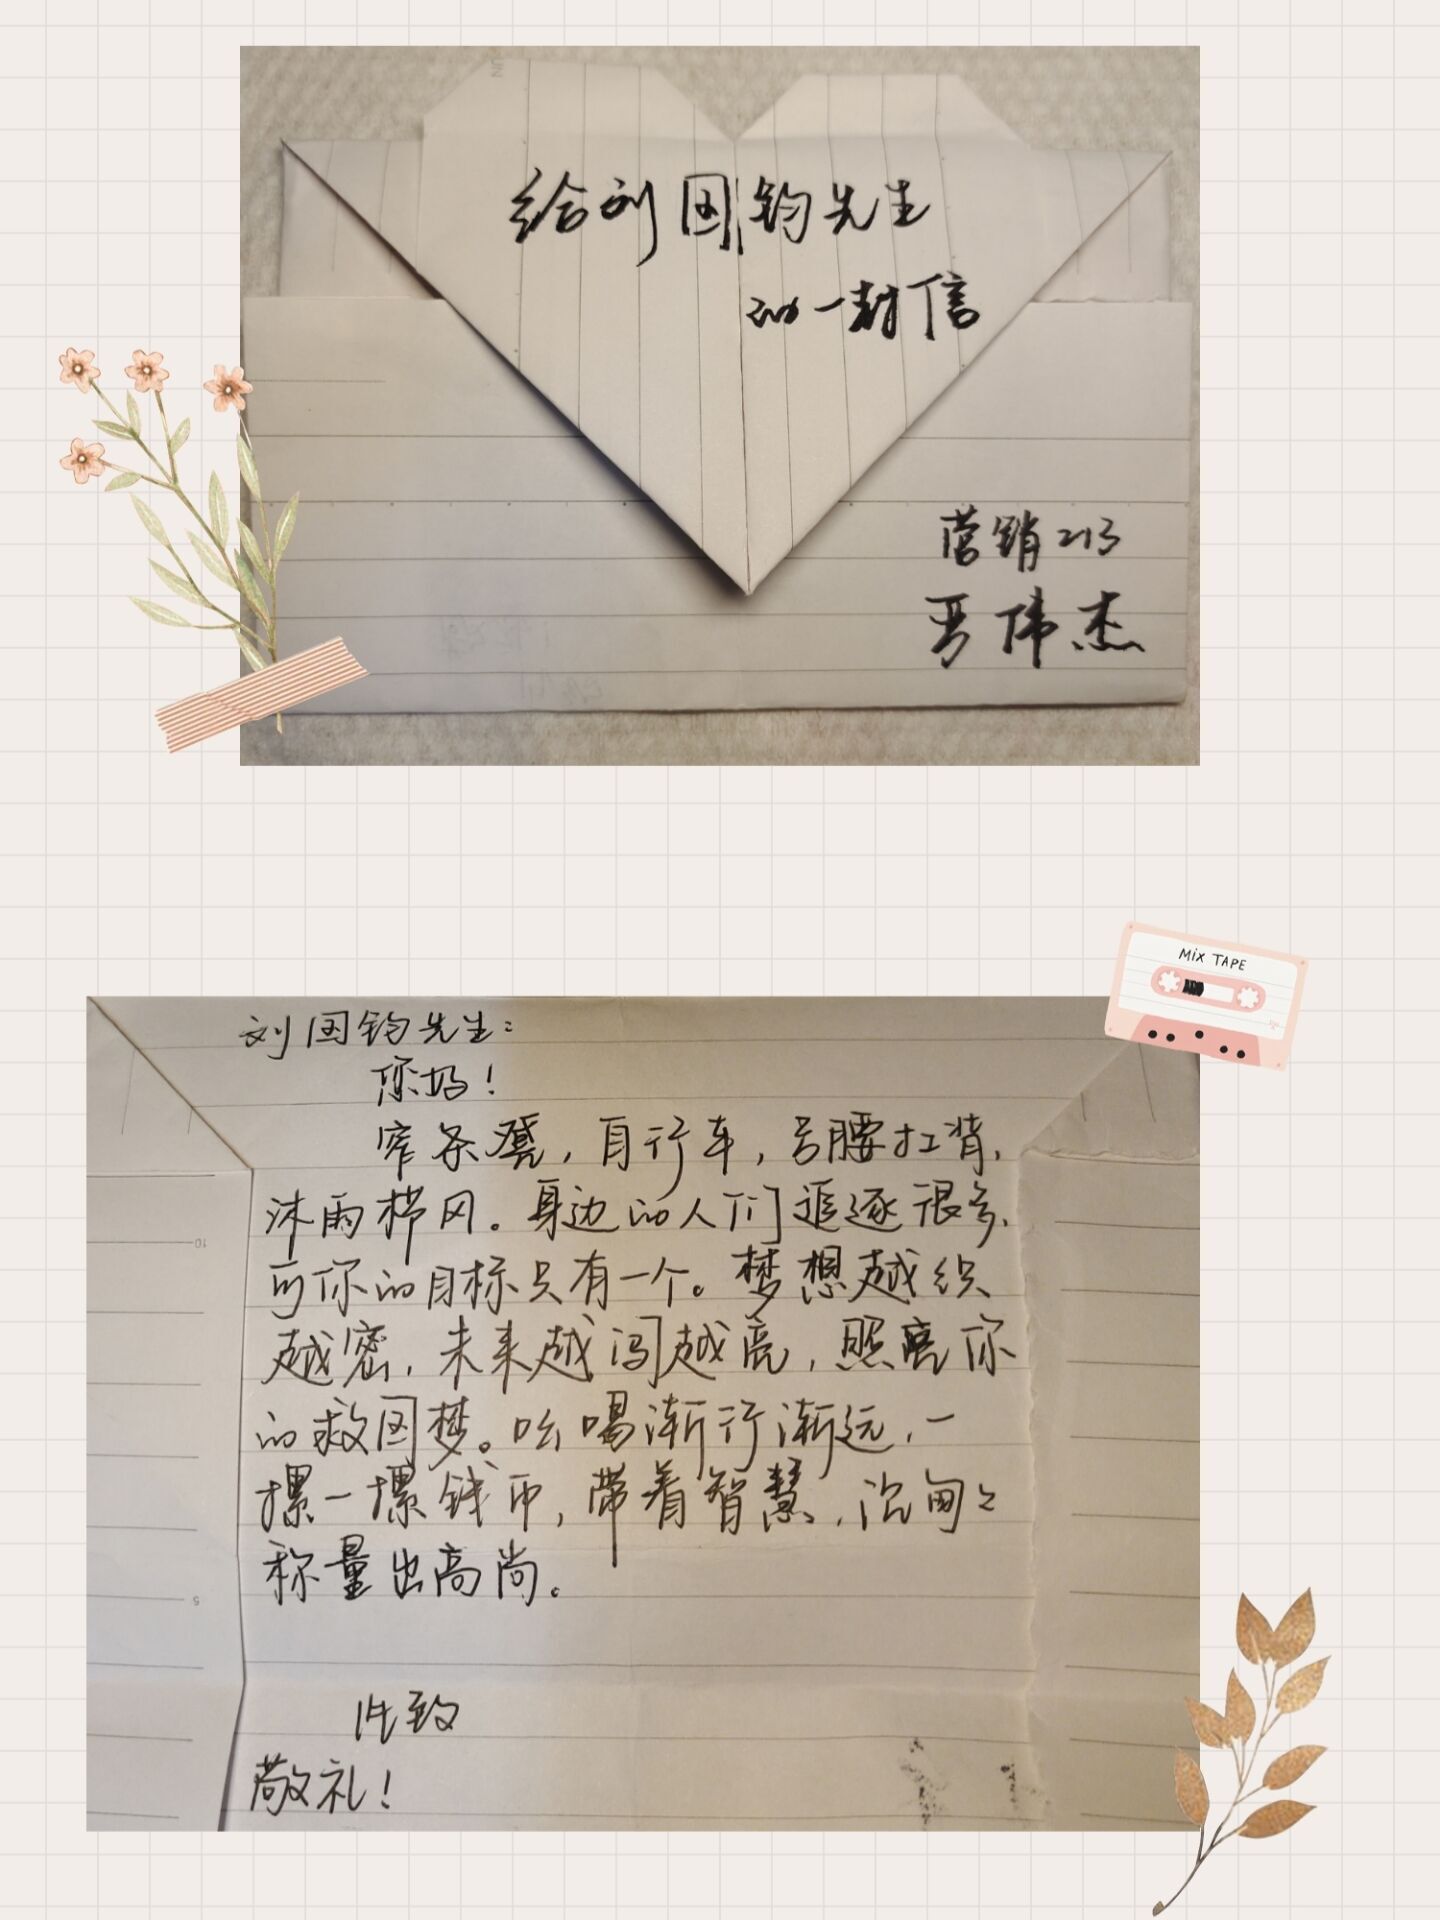 给刘国钧先生
的一封信
营销213
晋伟杰
MIX TAPE
刘国钧先生：
您好！
窄条凳，自行车，弓腰扛背，
沐雨栉风。身边的人们追逐很多，
可你的目标只有一个。梦想越织
越密，未来越闯越亮，照亮你
的救国梦。吆喝渐行渐远，一
摞一摞钱币，带着智慧，沉甸甸
称量出高尚。
此致
敬礼！
10
5